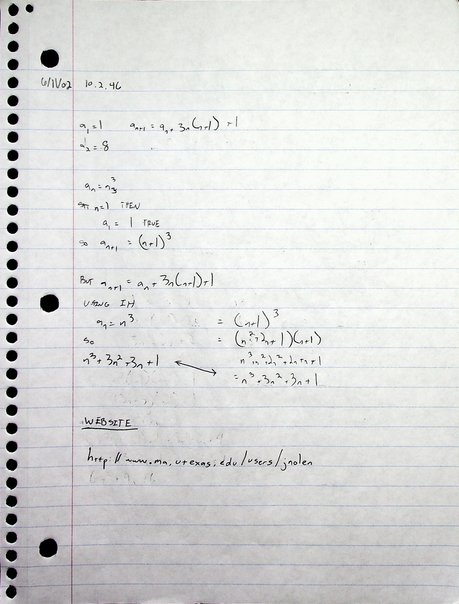 6/11/02 10.2.46
a₁ = 1 aₙ₊₁ = aₙ + 3n(n+1) + 1
a₂ = 8
aₙ = n³
n=1 THEN
a₁ = 1 TRUE
SO aₙ₊₁ = (n+1)³
BUT aₙ₊₁ = aₙ + 3n(n+1) + 1
USING IH
aₙ = n³ = (n+1)³
SO = (n²+2n+1)(n+1)
n³+3n²+3n+1 ↔ n³+n²+2n²+2n+n+1
= n³+3n²+3n+1
WEBSITE
http://www.ma.utexas.edu/users/jnolen